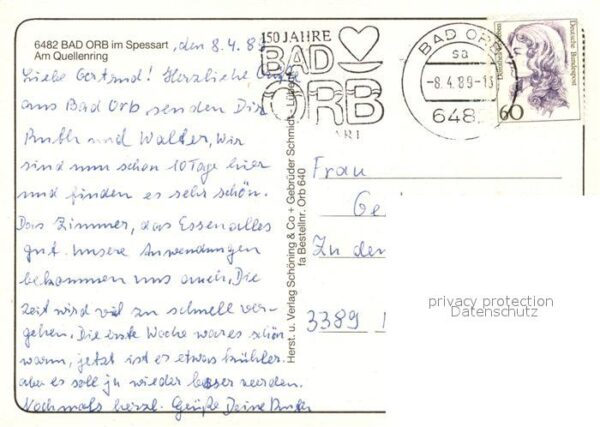 6482 BAD ORB im Spessart
Am Quellenring
, den 8.4.89
Liebe Gertrud! Herzliche Grüße
aus Bad Orb, senden Dir
Ruth und Walter, Wir
sind nun schon 10 Tage hier
und finden es sehr schön.
Das Zimmer, das Essen alles
gut. Unsere Anwendungen
bekommen uns auch, Die
Zeit wird viel zu schnell ver-
gehen. Die erste Woche war es schön
warm, jetzt ist er etwas kühler.
aber es soll ja wieder besser werden.
Nochmals herzl. Grüße Deine Ruth
Herst. u. Verlag Schöning & Co + Gebrüder Schmidt
fa Bestellnr. Orb 640
150 JAHRE
BAD
ORB
BAD ORB
sa
-8.4.89-1
648
Deutsche Bundespost
60
Frau
Ge
Zu de
3389
privacy protection
Datenschutz